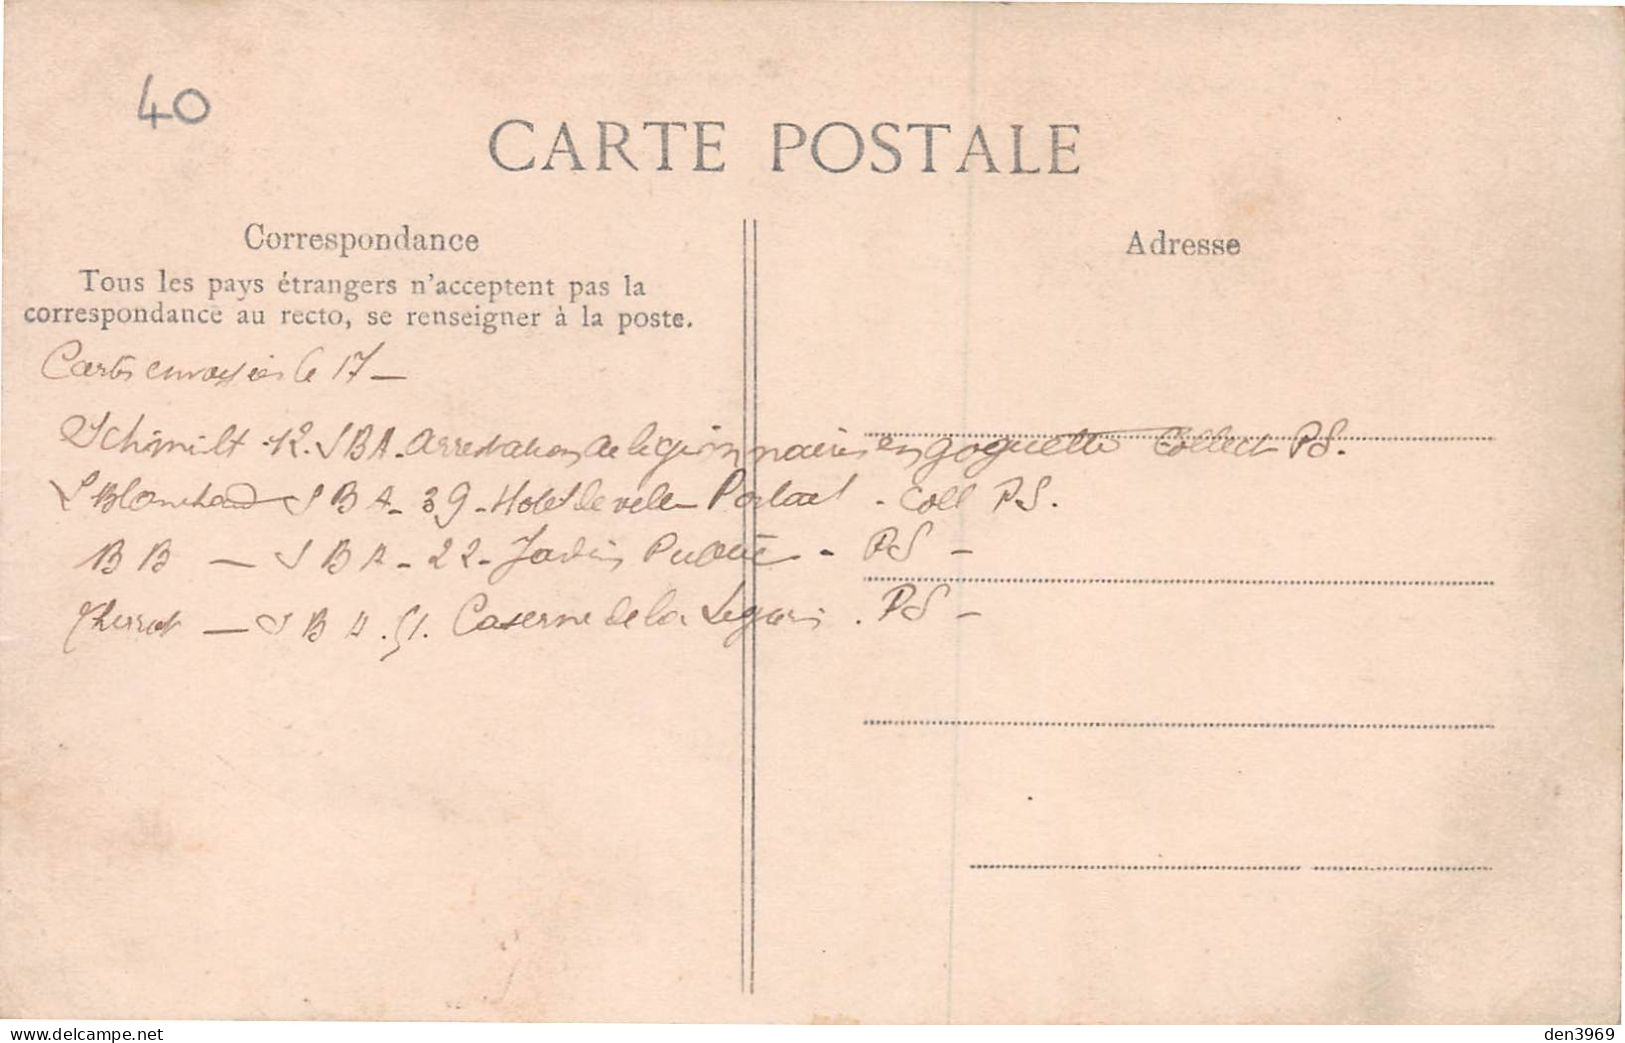 40
CARTE POSTALE
Correspondance
Tous les pays étrangers n'acceptent pas la
correspondance au recto, se renseigner à la poste.
Adresse
Cartes envoyées le 17 —
Schimilt - 12. SBA. Arrestation de légionnaires en goguette Collect PS.
L Blanchard SBA - 39 - Hotel de ville Portail - Coll PS.
BB — SBA - 22 - Jardin Public - PS —
— SBA. 51. Caserne de la Legion. PS —
www.delcampe.net
den3969